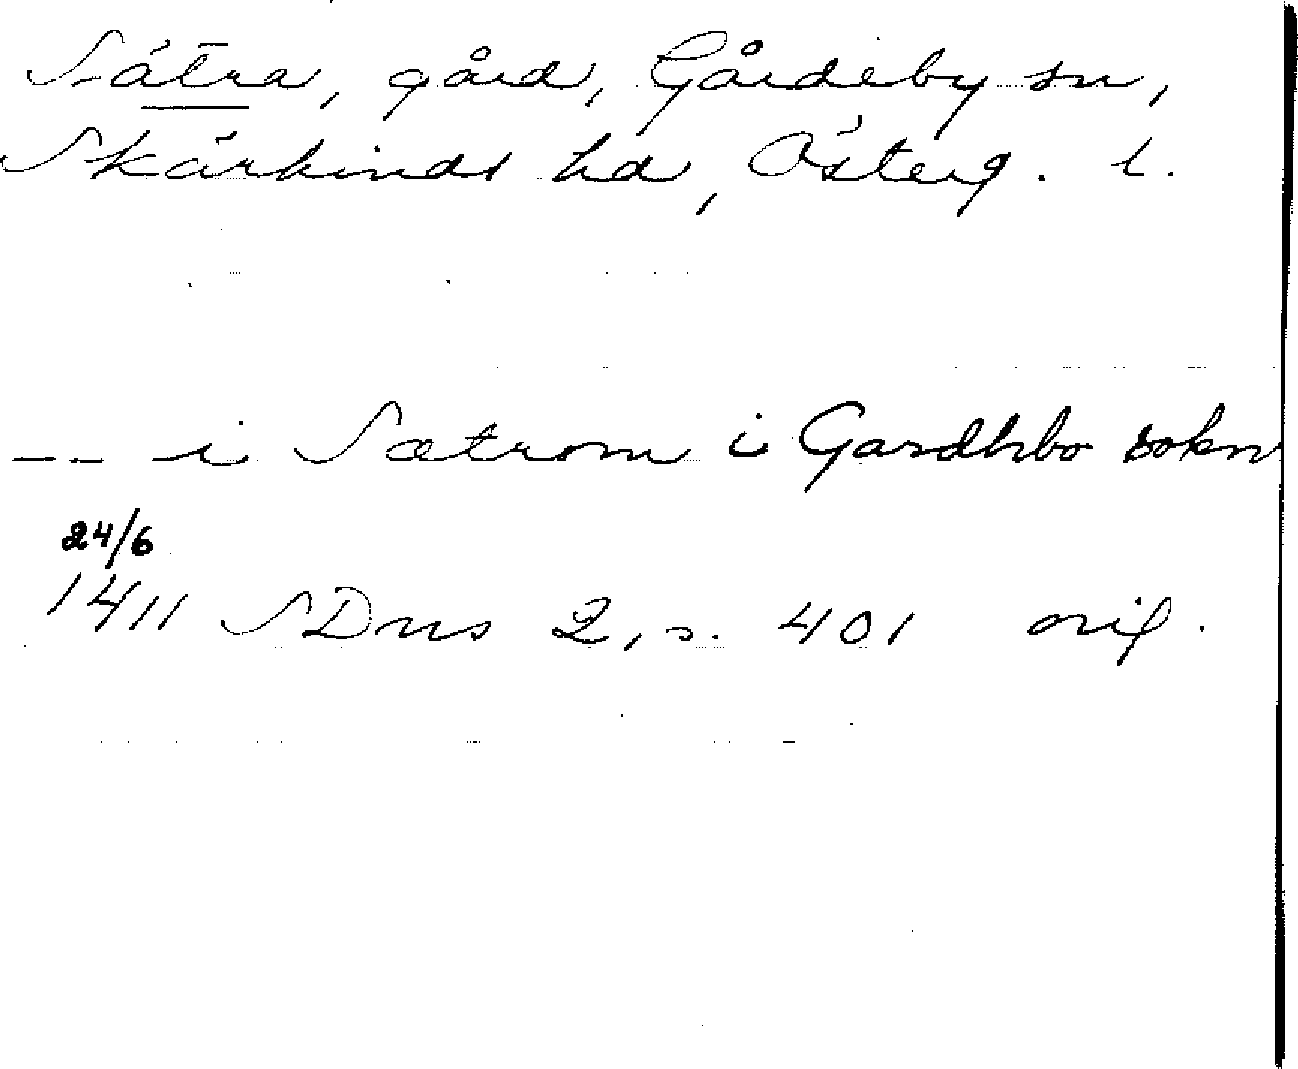 Sätra, gård, Gårdeby sn,
Skärkinds hd, Österg. l.
-- i Sætrom i Gardhbo sokn
24/6
1411 SDns 2, s. 401 orig.